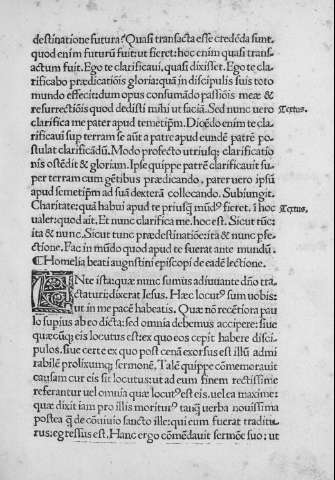 destinatione futura? Quasi transacta esse credēda sunt.
quod enim futurū fuit ut fieret: hoc enim quasi trans-
actum fuit. Ego te clarificaui, quasi dixisset. Ego te cla-
rificabo prædicatiōis gloria: quā in discipulis suis toto
mundo effeci: dum opus consumādo passiōis meæ &
resurrectiōis quod dedisti mihi ut faciā. Sed nunc uero Textus.
clarifica me pater apud temetip̄m. Dicēdo enim te cla-
rificaui sup terram se aūt a patre apud eundē patrē po-
stulat clarificādū. Modo profecto utriusq; clarificatio
nis ostēdit & gloriam. Ipse quippe patrē clarificauit su-
per terram cum gētibus prædicando, pater uero ipsū
apud semetip̄m ad suā dexterā collocando. Subiungit.
Charitate: quā habui apud te priusq̄ mūdꝰ fieret. ī hoc Textus.
ualet: quod ait. Et nunc clarifica me. hoc est. Sicut tūc:
ita & nunc. Sicut tunc prædestinatiōe: ita & nunc pfe-
ctione. Fac in mūdo quod apud te fuerat ante mundū.
¶ Homelia beati augustini episcopi de eadē lectione.
ANte ista: quæ nunc sumus adiuuante dn̄o tra-
ctaturi: dixerat Iesus. Hæc locutꝰ sum uobis:
ut in me pacē habeatis. Quæ nō recētiora pau
lo supius ab eo dicta: sed omnia debemus accipere: siue
quæcūq; eis locutus est: ex quo eos cepit habere disci-
pulos. siue certe ex quo post cenā exorsus est illū admi
rabilē prolixumq; sermonē. Talē quippe cōmemorauit
causam cur eis sit locutus: ut ad eum finem rectissime
referantur uel omnia quæ locutꝰ est eis. uel ea maxime:
quæ dixit iam pro illis moriturꝰ tanq̄ uerba nouissima
postea q̄ de cōuiuio sancto ille: qui eum fuerat traditu-
rus: egressus est. Hanc ergo cōmēdauit sermōē suo: ut